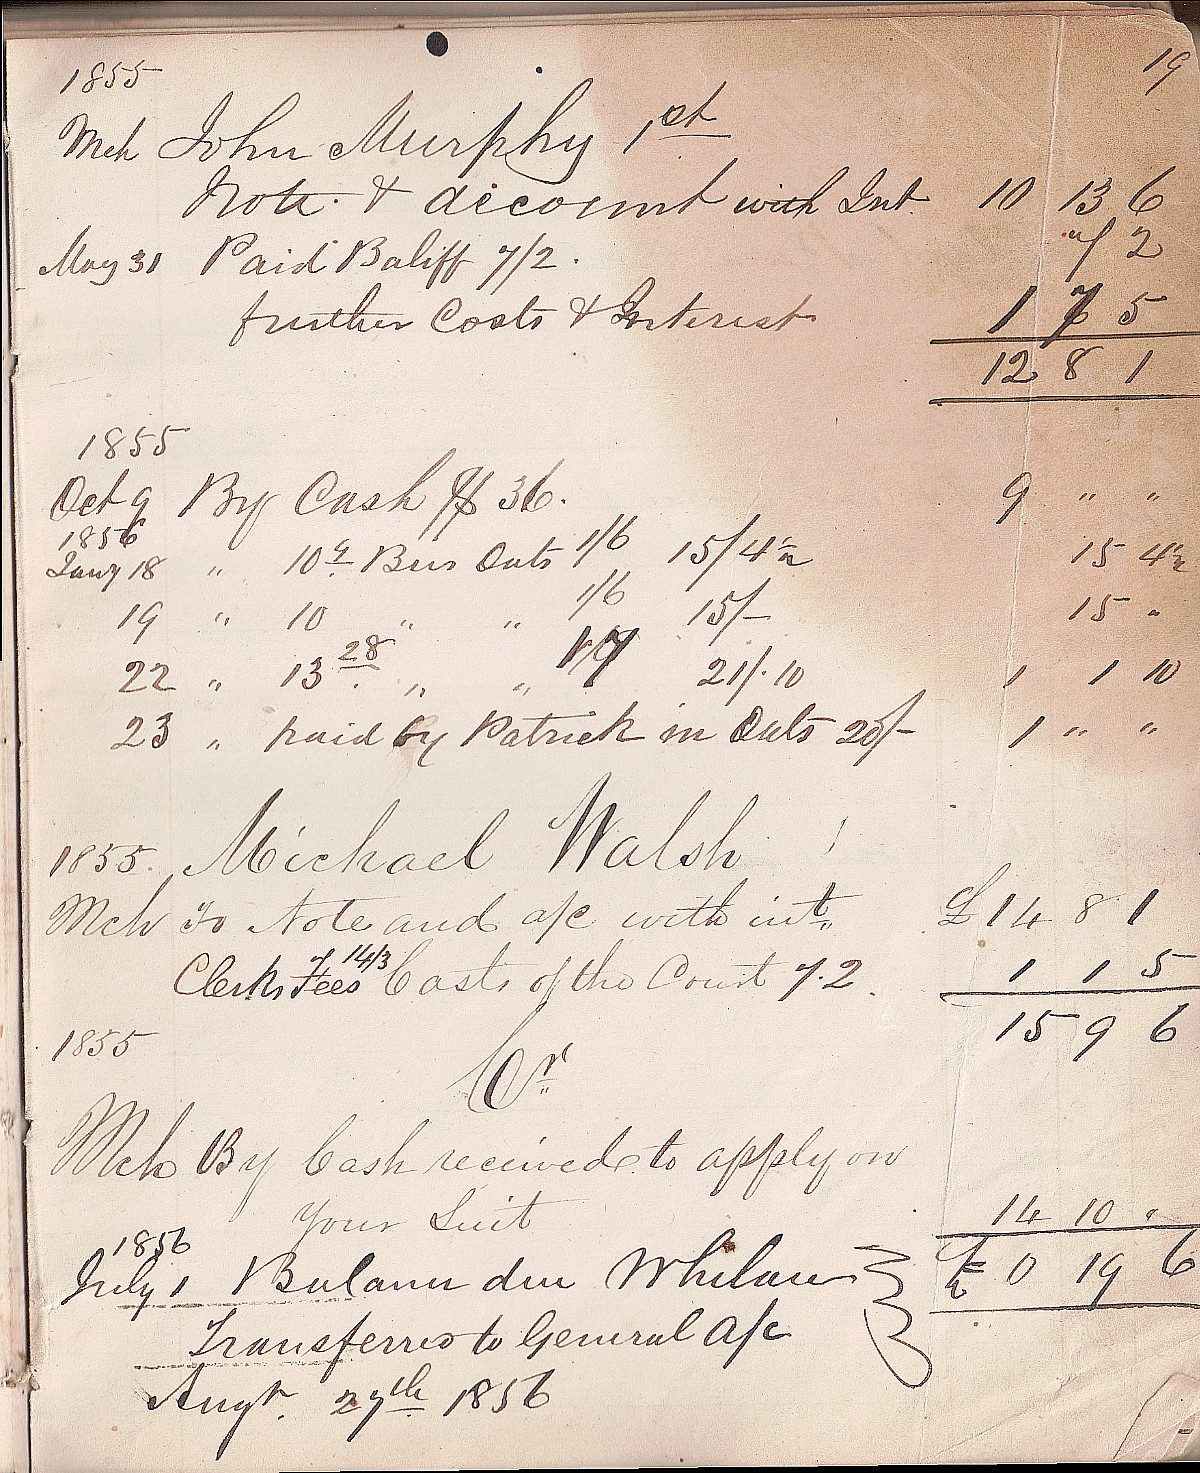 19
1855
Mch John Murphy 1st
Note & account with Int. 10 13 6
May 31 Paid Baliff 7/2. 7/ 2
further Costs & Interest 1 7 5
12 8 1
1855
Oct 9 By Cash $ 36. 9 " "
1856
Jany 18 " 10 9 Bus Oats 1/6 15/4½ 15 4½
19 " 10 " " 1/6 15/- 15 "
22 " 13 28 " " 1/7 21/.10 1 1 10
23 " paid by Patrick in Oats 20/- 1 " "
1855. Michael Walsh
Mch To Note and a/c with int. £14 8 1
Clerks Fees 14/3 Costs of the Court 7.2. 1 1 5
15 9 6
1855
Cr
Mch By Cash received to apply on
Your Suit 14 10 "
1856
July 1 Balance due Whelan 0 19 6
Transferred to General a/c
Augt. 27th 1856